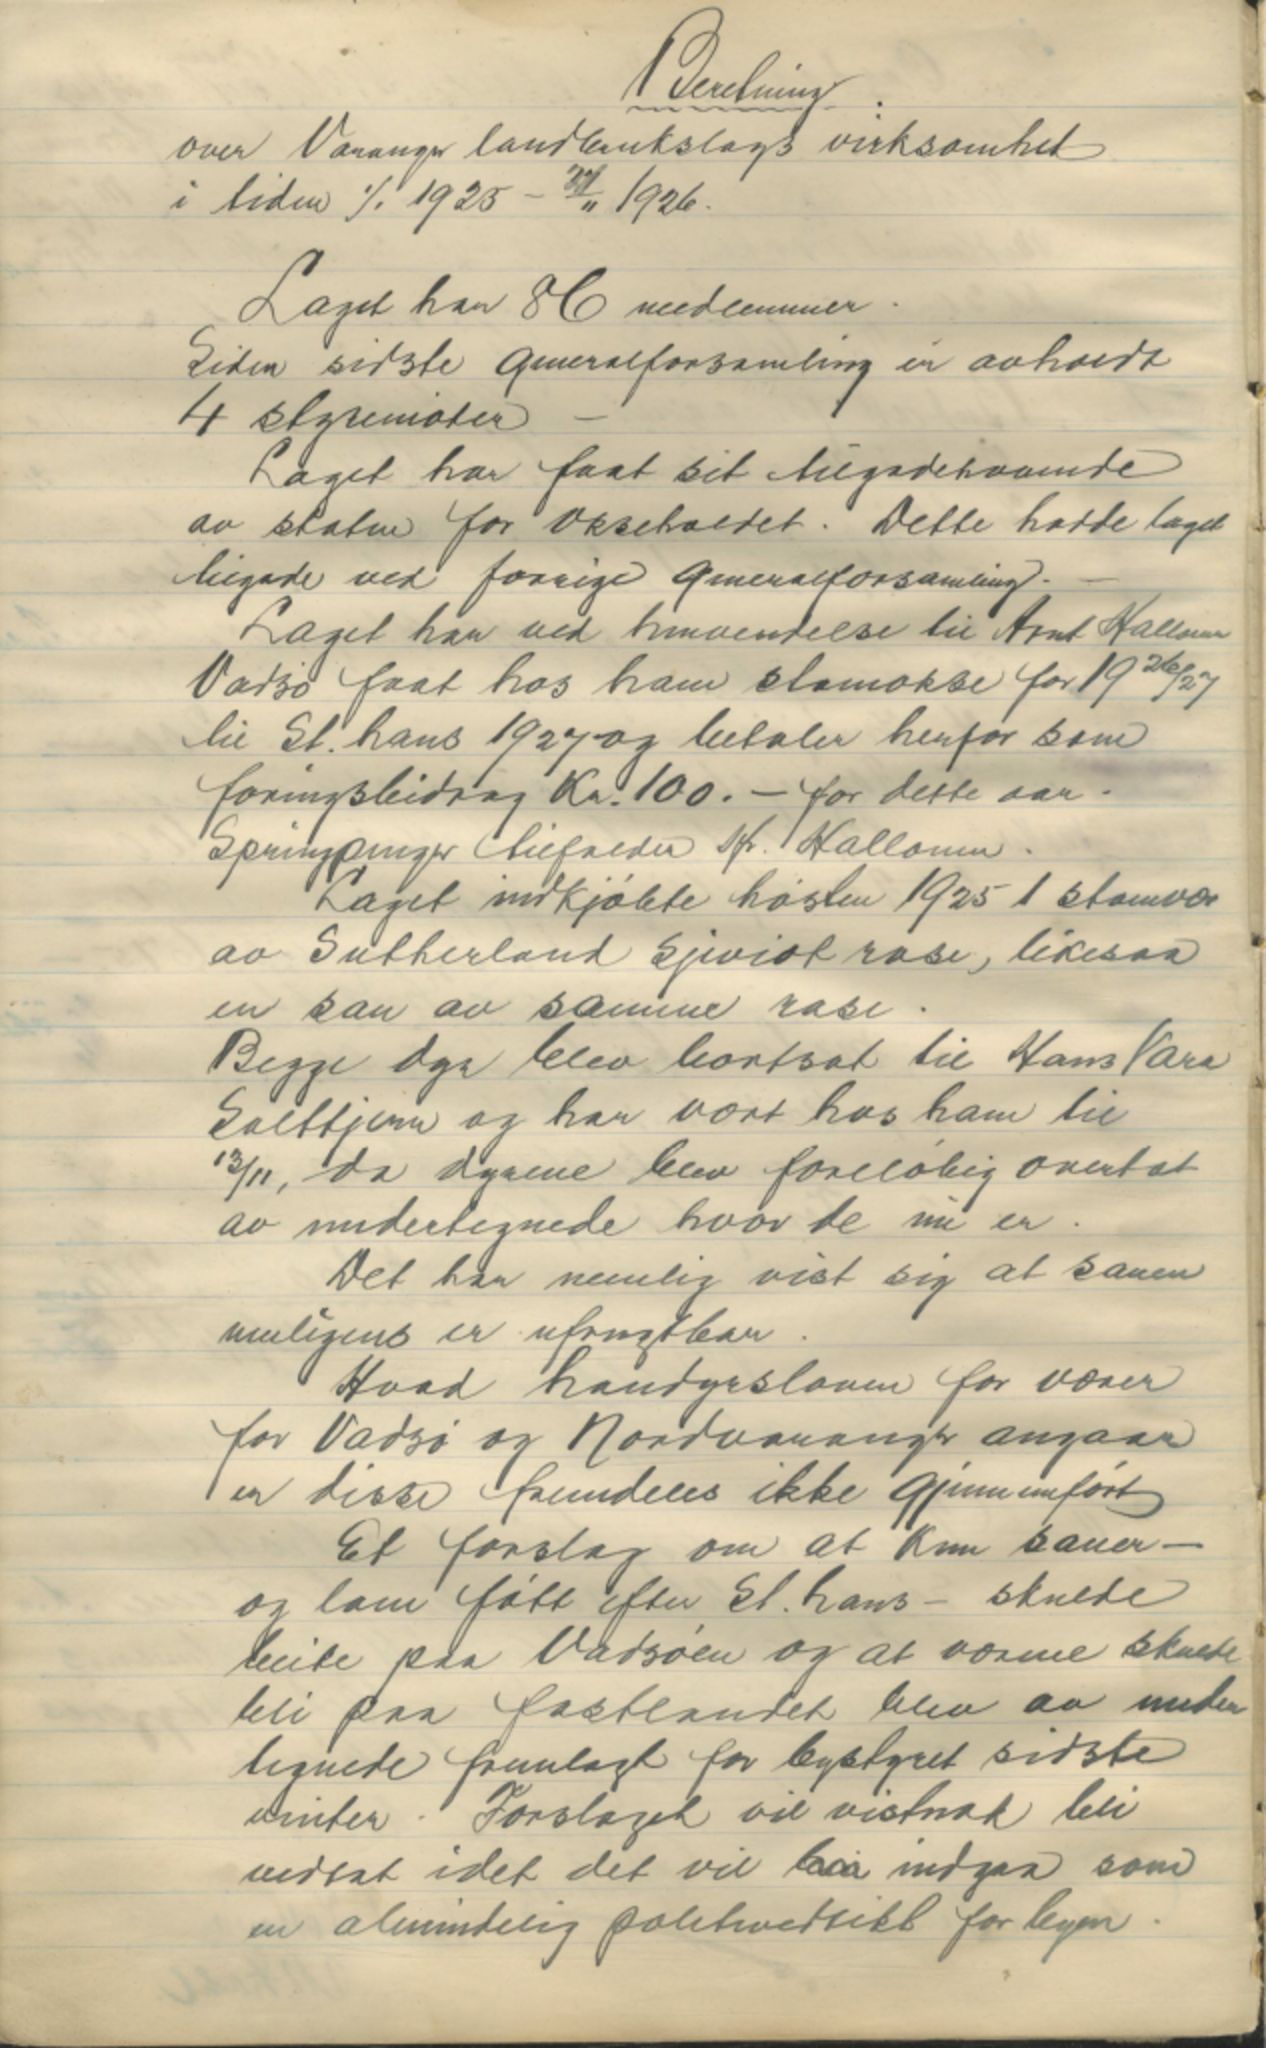 Beretning
over Varanger landbrukslags virksomhet
i tiden 1/1 1925 - 1926.
Laget har 86 medlemmer.
Siden sidste generalforsamling er avholdt
4 styremøter -
Laget har faat sit tilgodehavende
av staten for okseholdet. Dette hadde laget
tilgode ved forrige generalforsamling. -
Laget har ved henvendelse til Arnt Hallonen
Vadsø faat hos ham stamokse for 1926/27
til St. hans 1927 og betaler herfor som
foringsbidrag Kr. 100. - for dette aar.
Springpenger tilfalder Hr. Hallonen.
Laget indkjøbte høsten 1925 1 stamvær
av Sutherland Sjeviot rase, likesaa
en sau av samme rase.
Begge dyr blev bortsat til Hans Vara
Salttjern og har vært hos ham til
13/11, da dyrene blev foreløbig overtat
av undertegnede hvor de nu er.
Det har nemlig vist sig at sauen
muligens er ufrugtbar.
Hvad handyrsloven for værer
for Vadsø og Nordvaranger angaar
er disse fremdeles ikke gjennemført
Et forslag om at kun sauer -
og lam født efter St. hans - skulde
beite paa Vadsøen og at værne skulde
bli paa fastlandet blev av under
tegnede fremlagt for bystyret sidste
vinter. Forslaget vil vistnok bli
vedtat idet det vil indgaa som
en almindelig politivedtekt for byen.